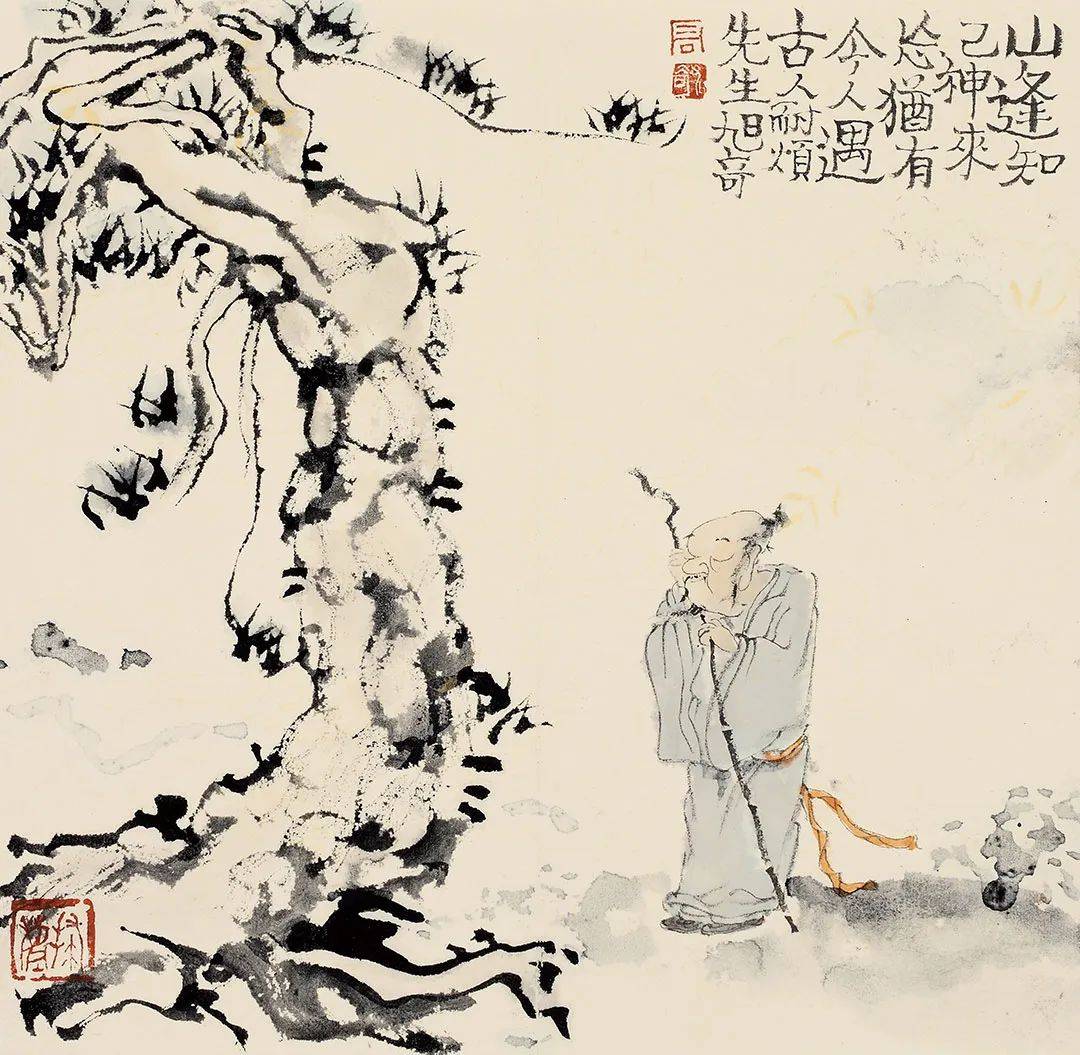 山逢知
己神來
忩猶有
今人遇
古人耐煩
先生旭奇